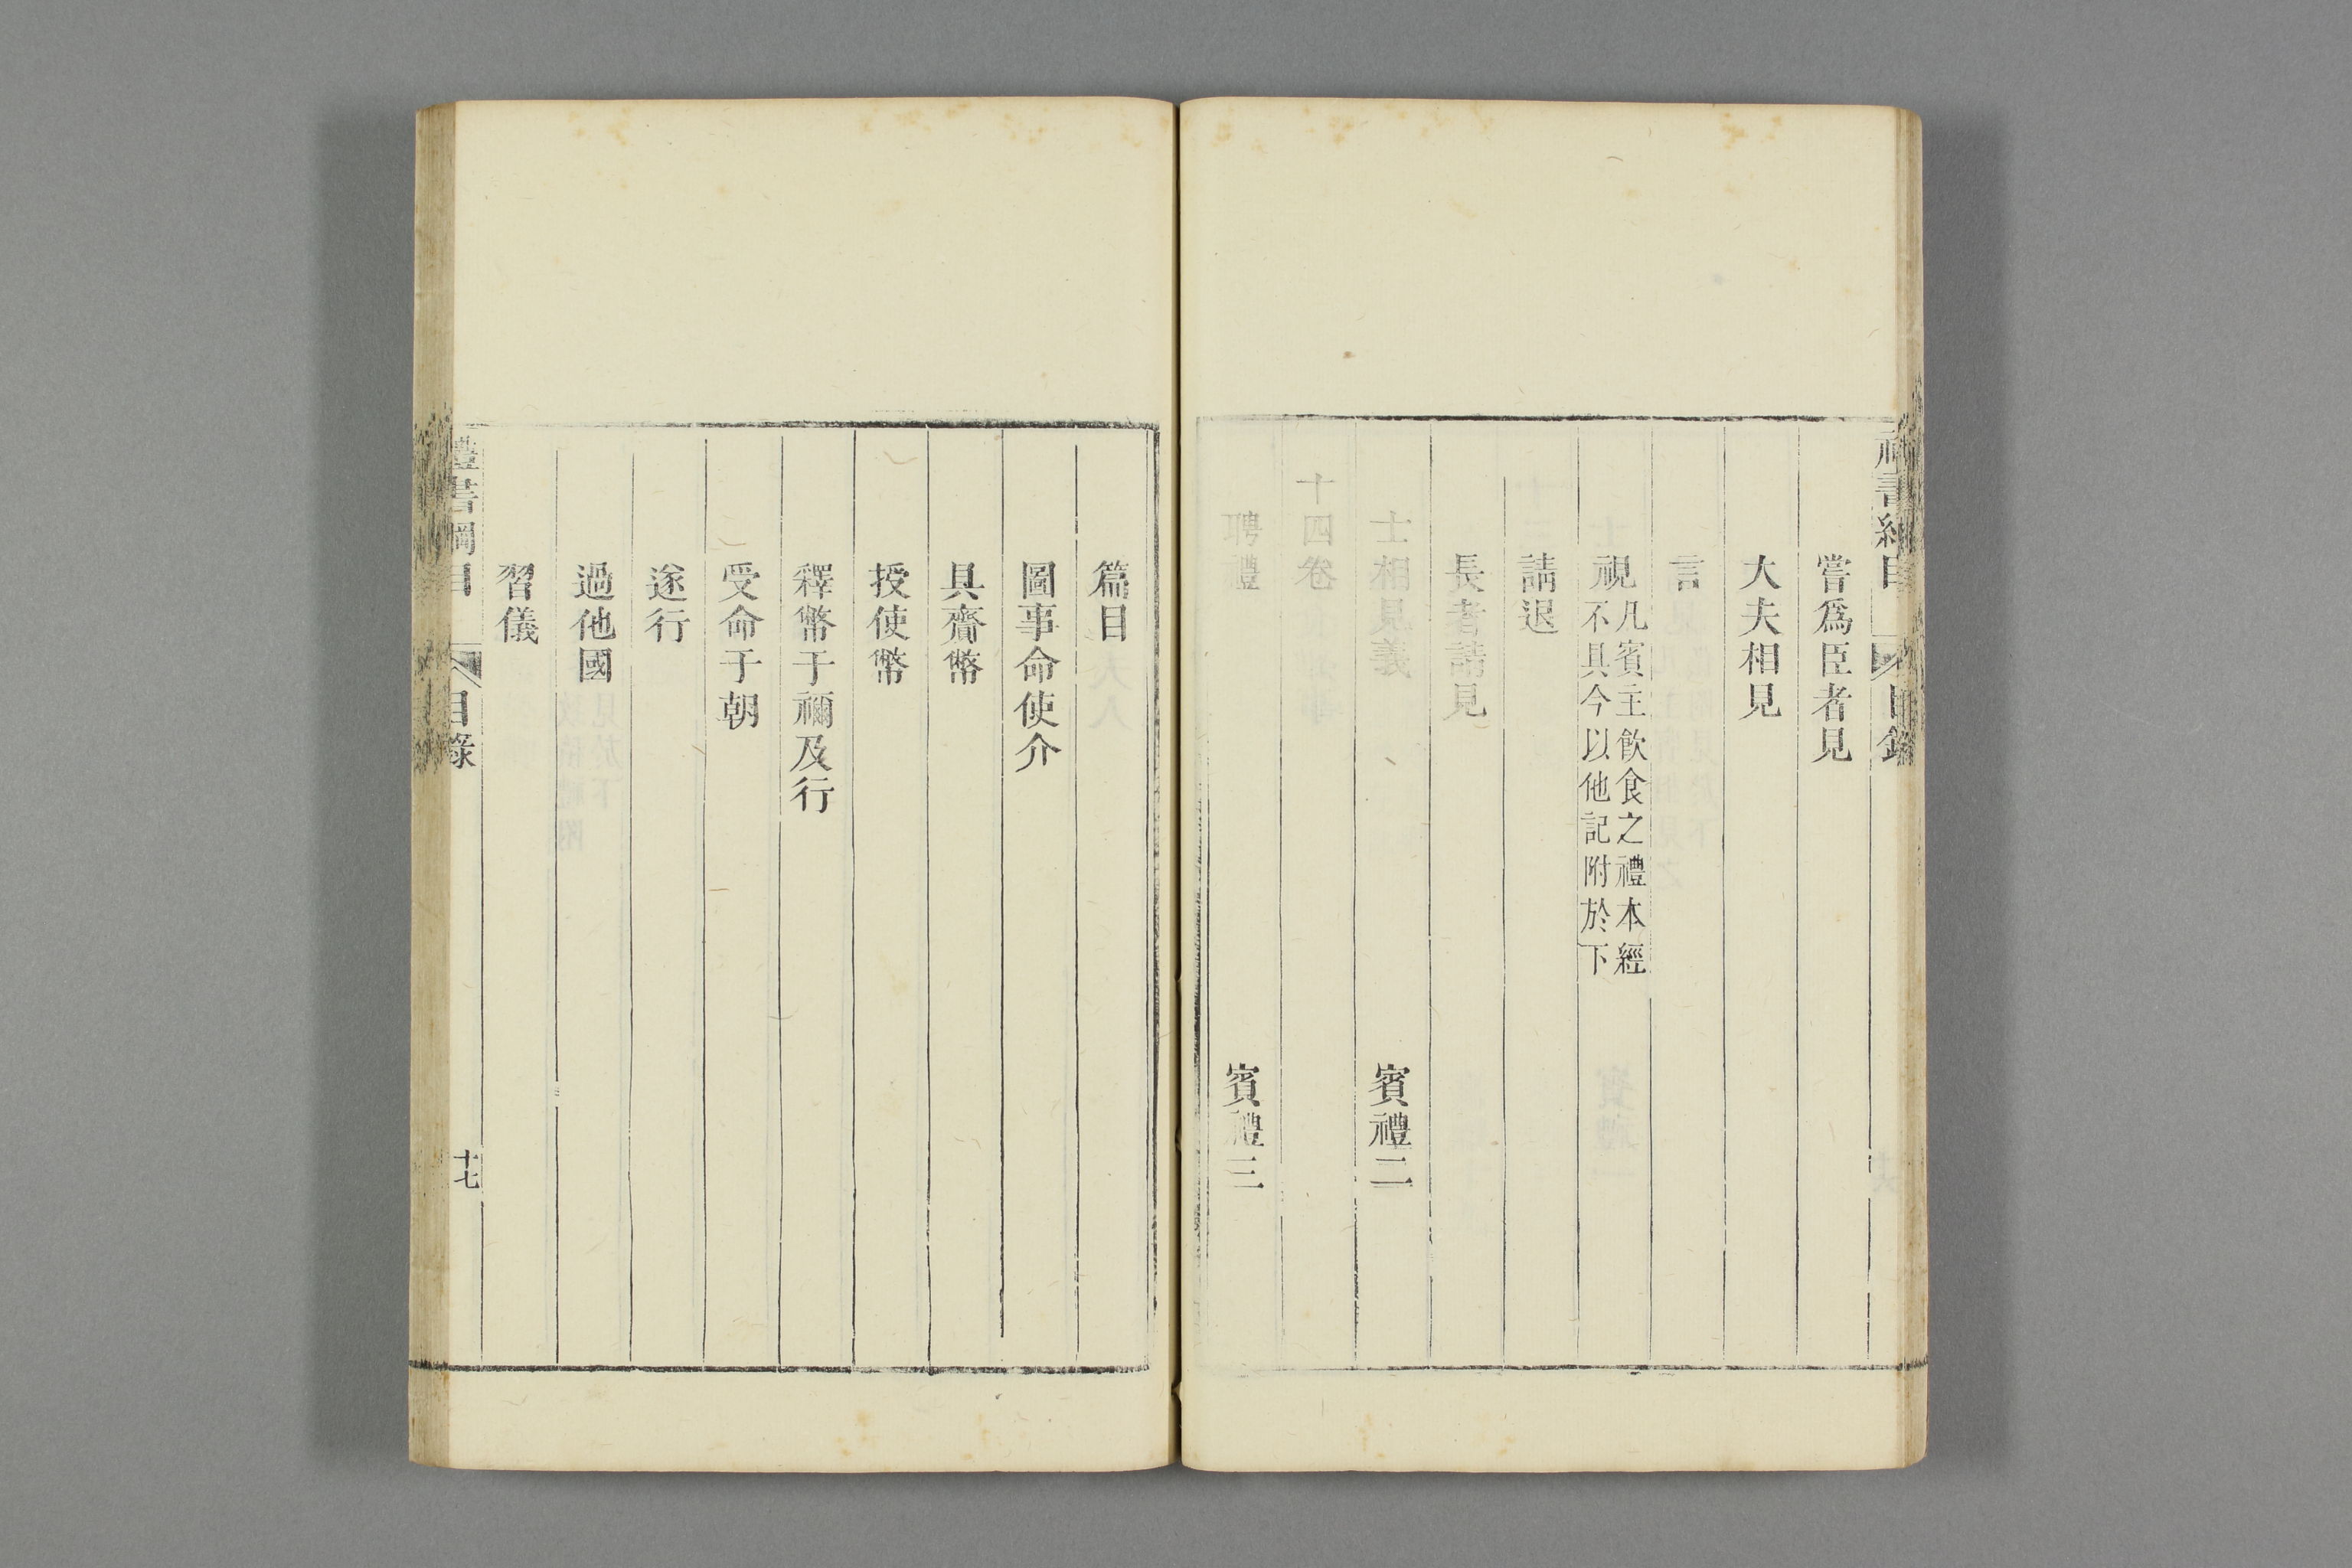 禮書綱目 目錄
嘗爲臣者見
大夫相見
言
視 凡賓主飲食之禮本經
不具今以他記附於下
請退
長者請見
士相見義 賓禮二
十四卷
聘禮 賓禮三
篇目
圖事命使介
具齎幣
授使幣
釋幣于禰及行
受命于朝
遂行
過他國
習儀
禮書綱目 目錄 十七